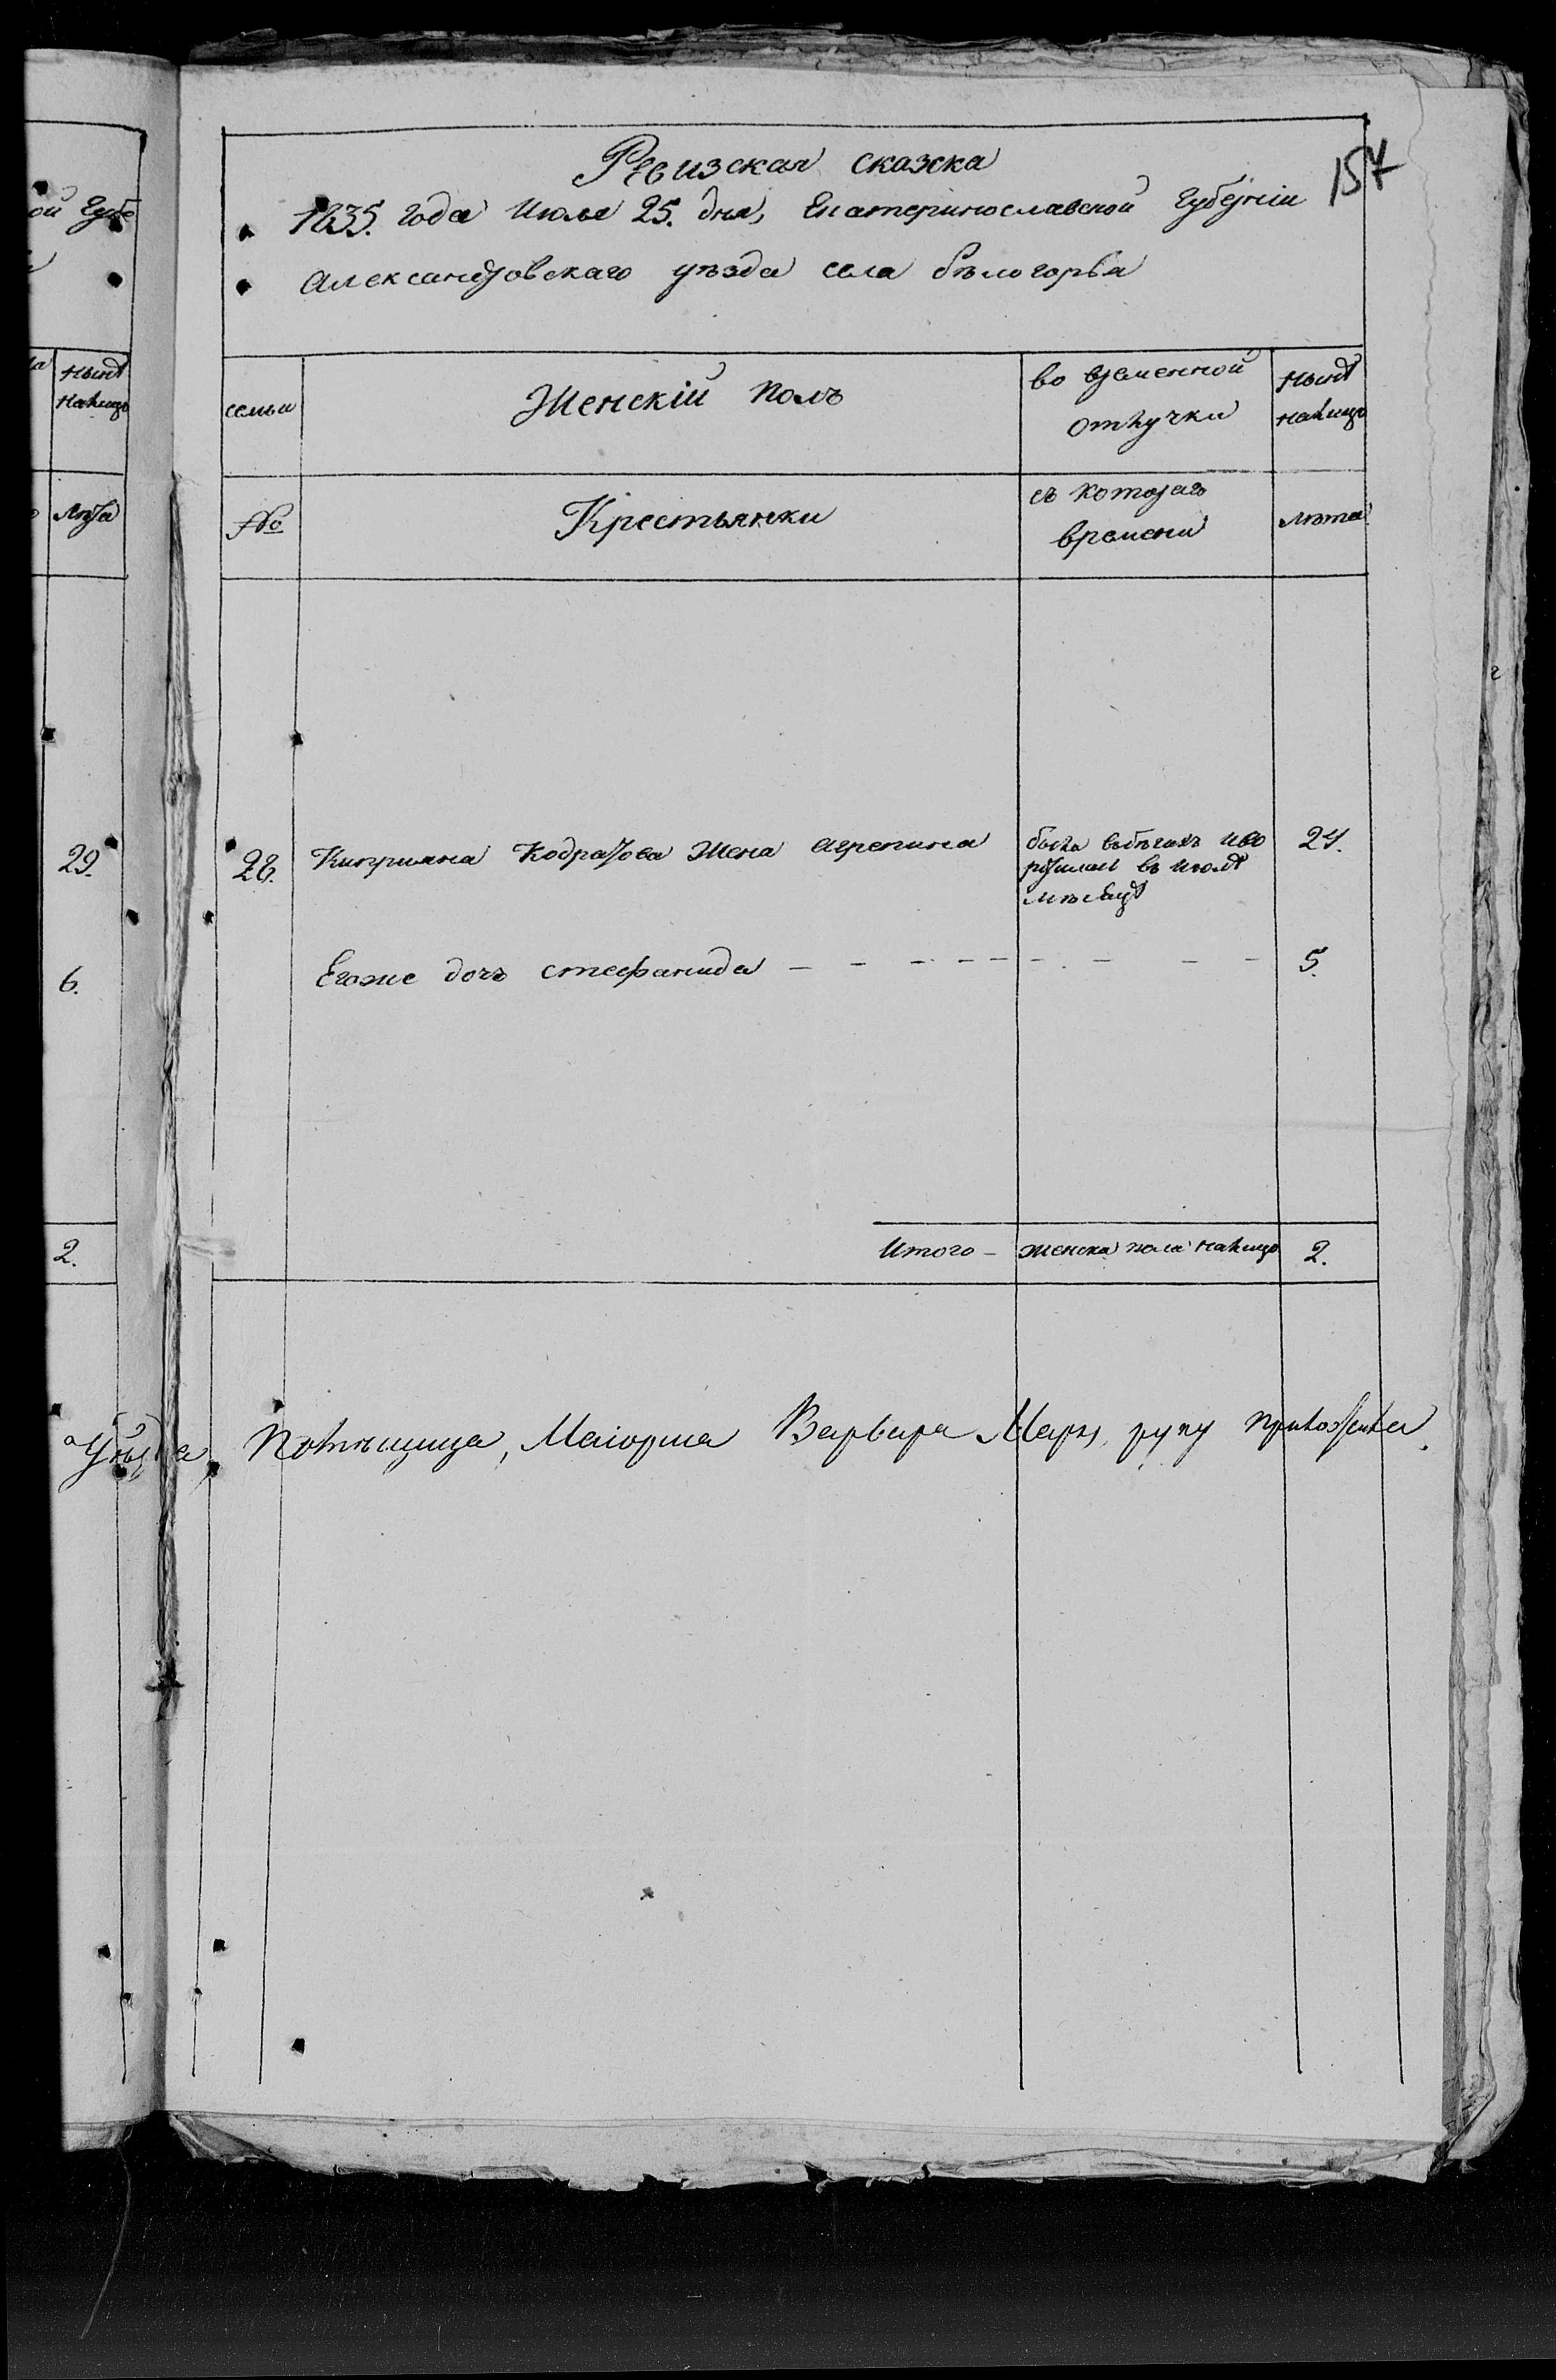 ой Губе
ныне
налицо
лета
29.
6.
2.
157
Ревизская сказка
1835. года Июля 25. дня, Екатеринославской Губерніи
Александровскаго уезда села белогорья
семьи
Женскій полъ
во временной
отлучки
ныне
налицо
№
Крестьянки
съ котораго
времени
лета
28.
Киприяна Кодратова Жена агрепина
была вбегахъ иво
ротилась въ июле
месяце
24.
Егоже дочь стефанида
5.
Итого - женска пола налицо 2.
Помещица, Маіорша Варвара Марк, руку приложила.